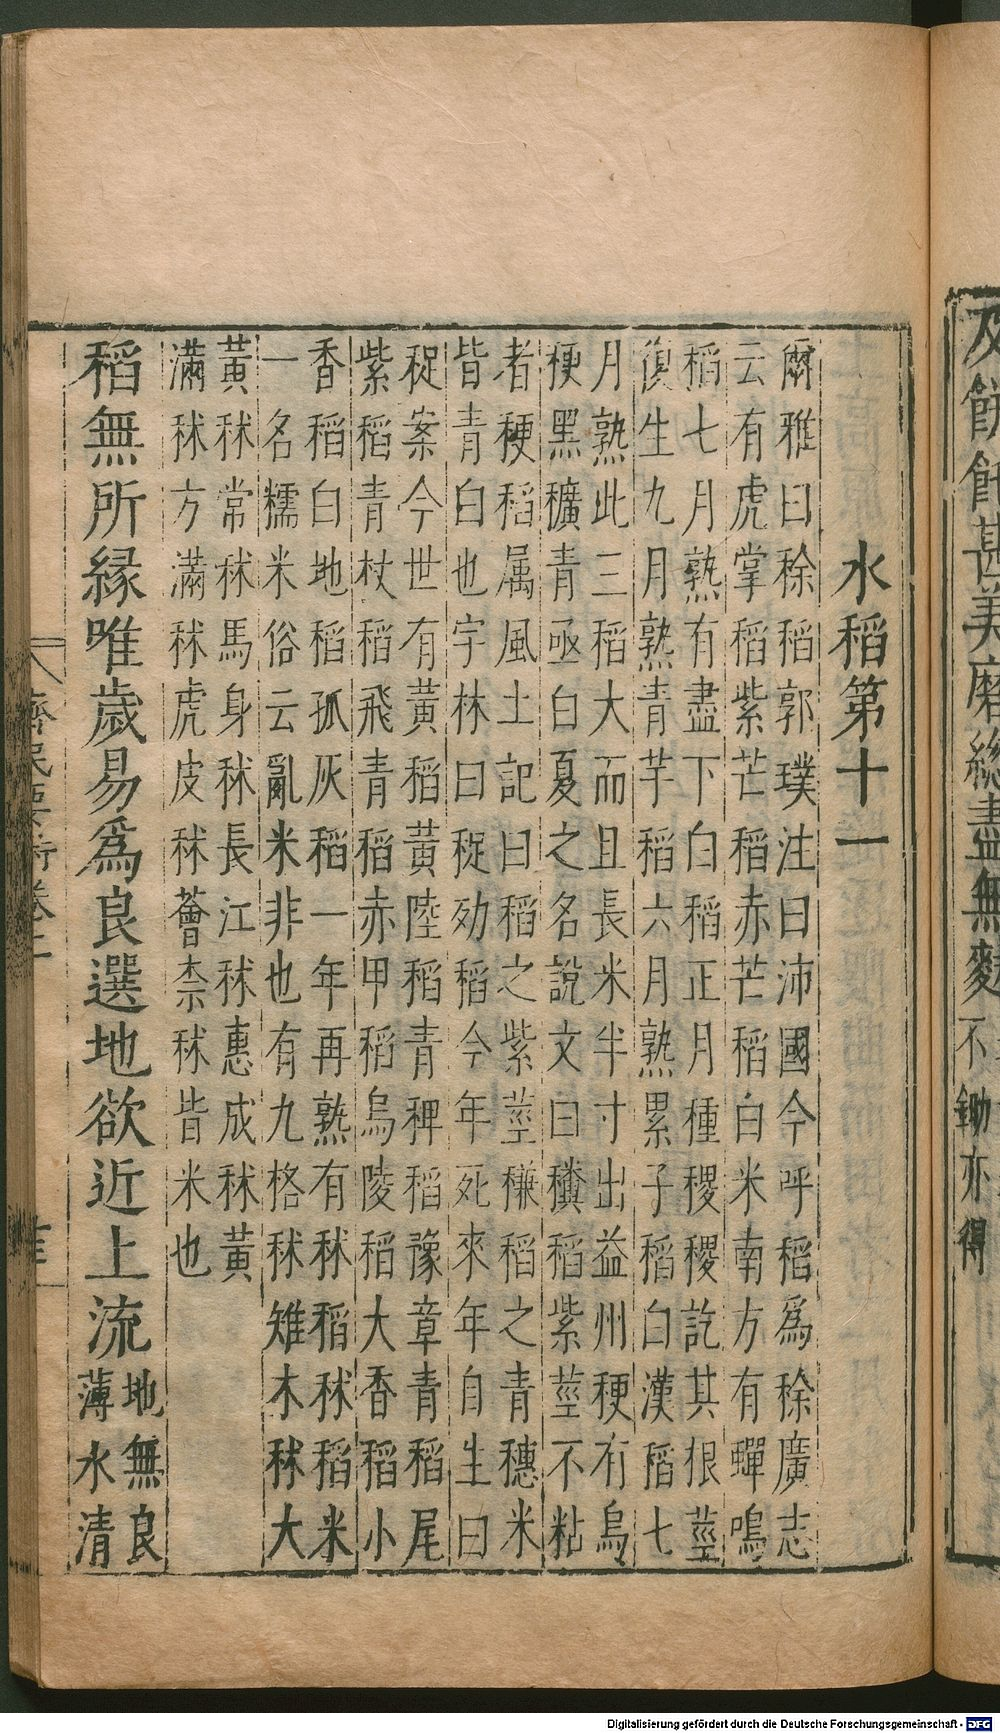 及餅飥甚美磨總盡無麩
不鋤亦得
水稻第十一
爾雅曰稌稻郭璞注曰沛國今呼稻為稌廣志
云有虎掌稻紫芒稻赤芒稻白米南方有蟬鳴
稻七月熟有盡下白稻正月種稷稷訖其根莖
復生九月熟青芋稻六月熟累子稻白漢稻七
月熟此三稻大而且長米半寸出益州稉有烏
梗黑穬青亟白夏之名說文曰䆏稻紫莖不粘
者稉稻属風土記曰稻之紫莖稴稻之青穗米
皆青白也字林曰秜劾稻今年死來年自生曰
秜案今世有黃稻黃陸稻青稗稻豫章青稻尾
紫稻青杖稻飛青稻赤甲稻烏陵稻大香稻小
香稻白地稻孤灰稻一年再熟有秫稻秫稻米
一名糯米俗云亂米非也有九格秫雉木秫大
黃秫常秫馬身秫長江秫惠成秫黃
滿秫方滿秫虎皮秫薈柰秫皆米也
稻無所緣唯歲易為良選地欲近上流
地無良
薄水清
齊民要術卷二
Digitalisierung gefördert durch die Deutsche Forschungsgemeinschaft - DFG